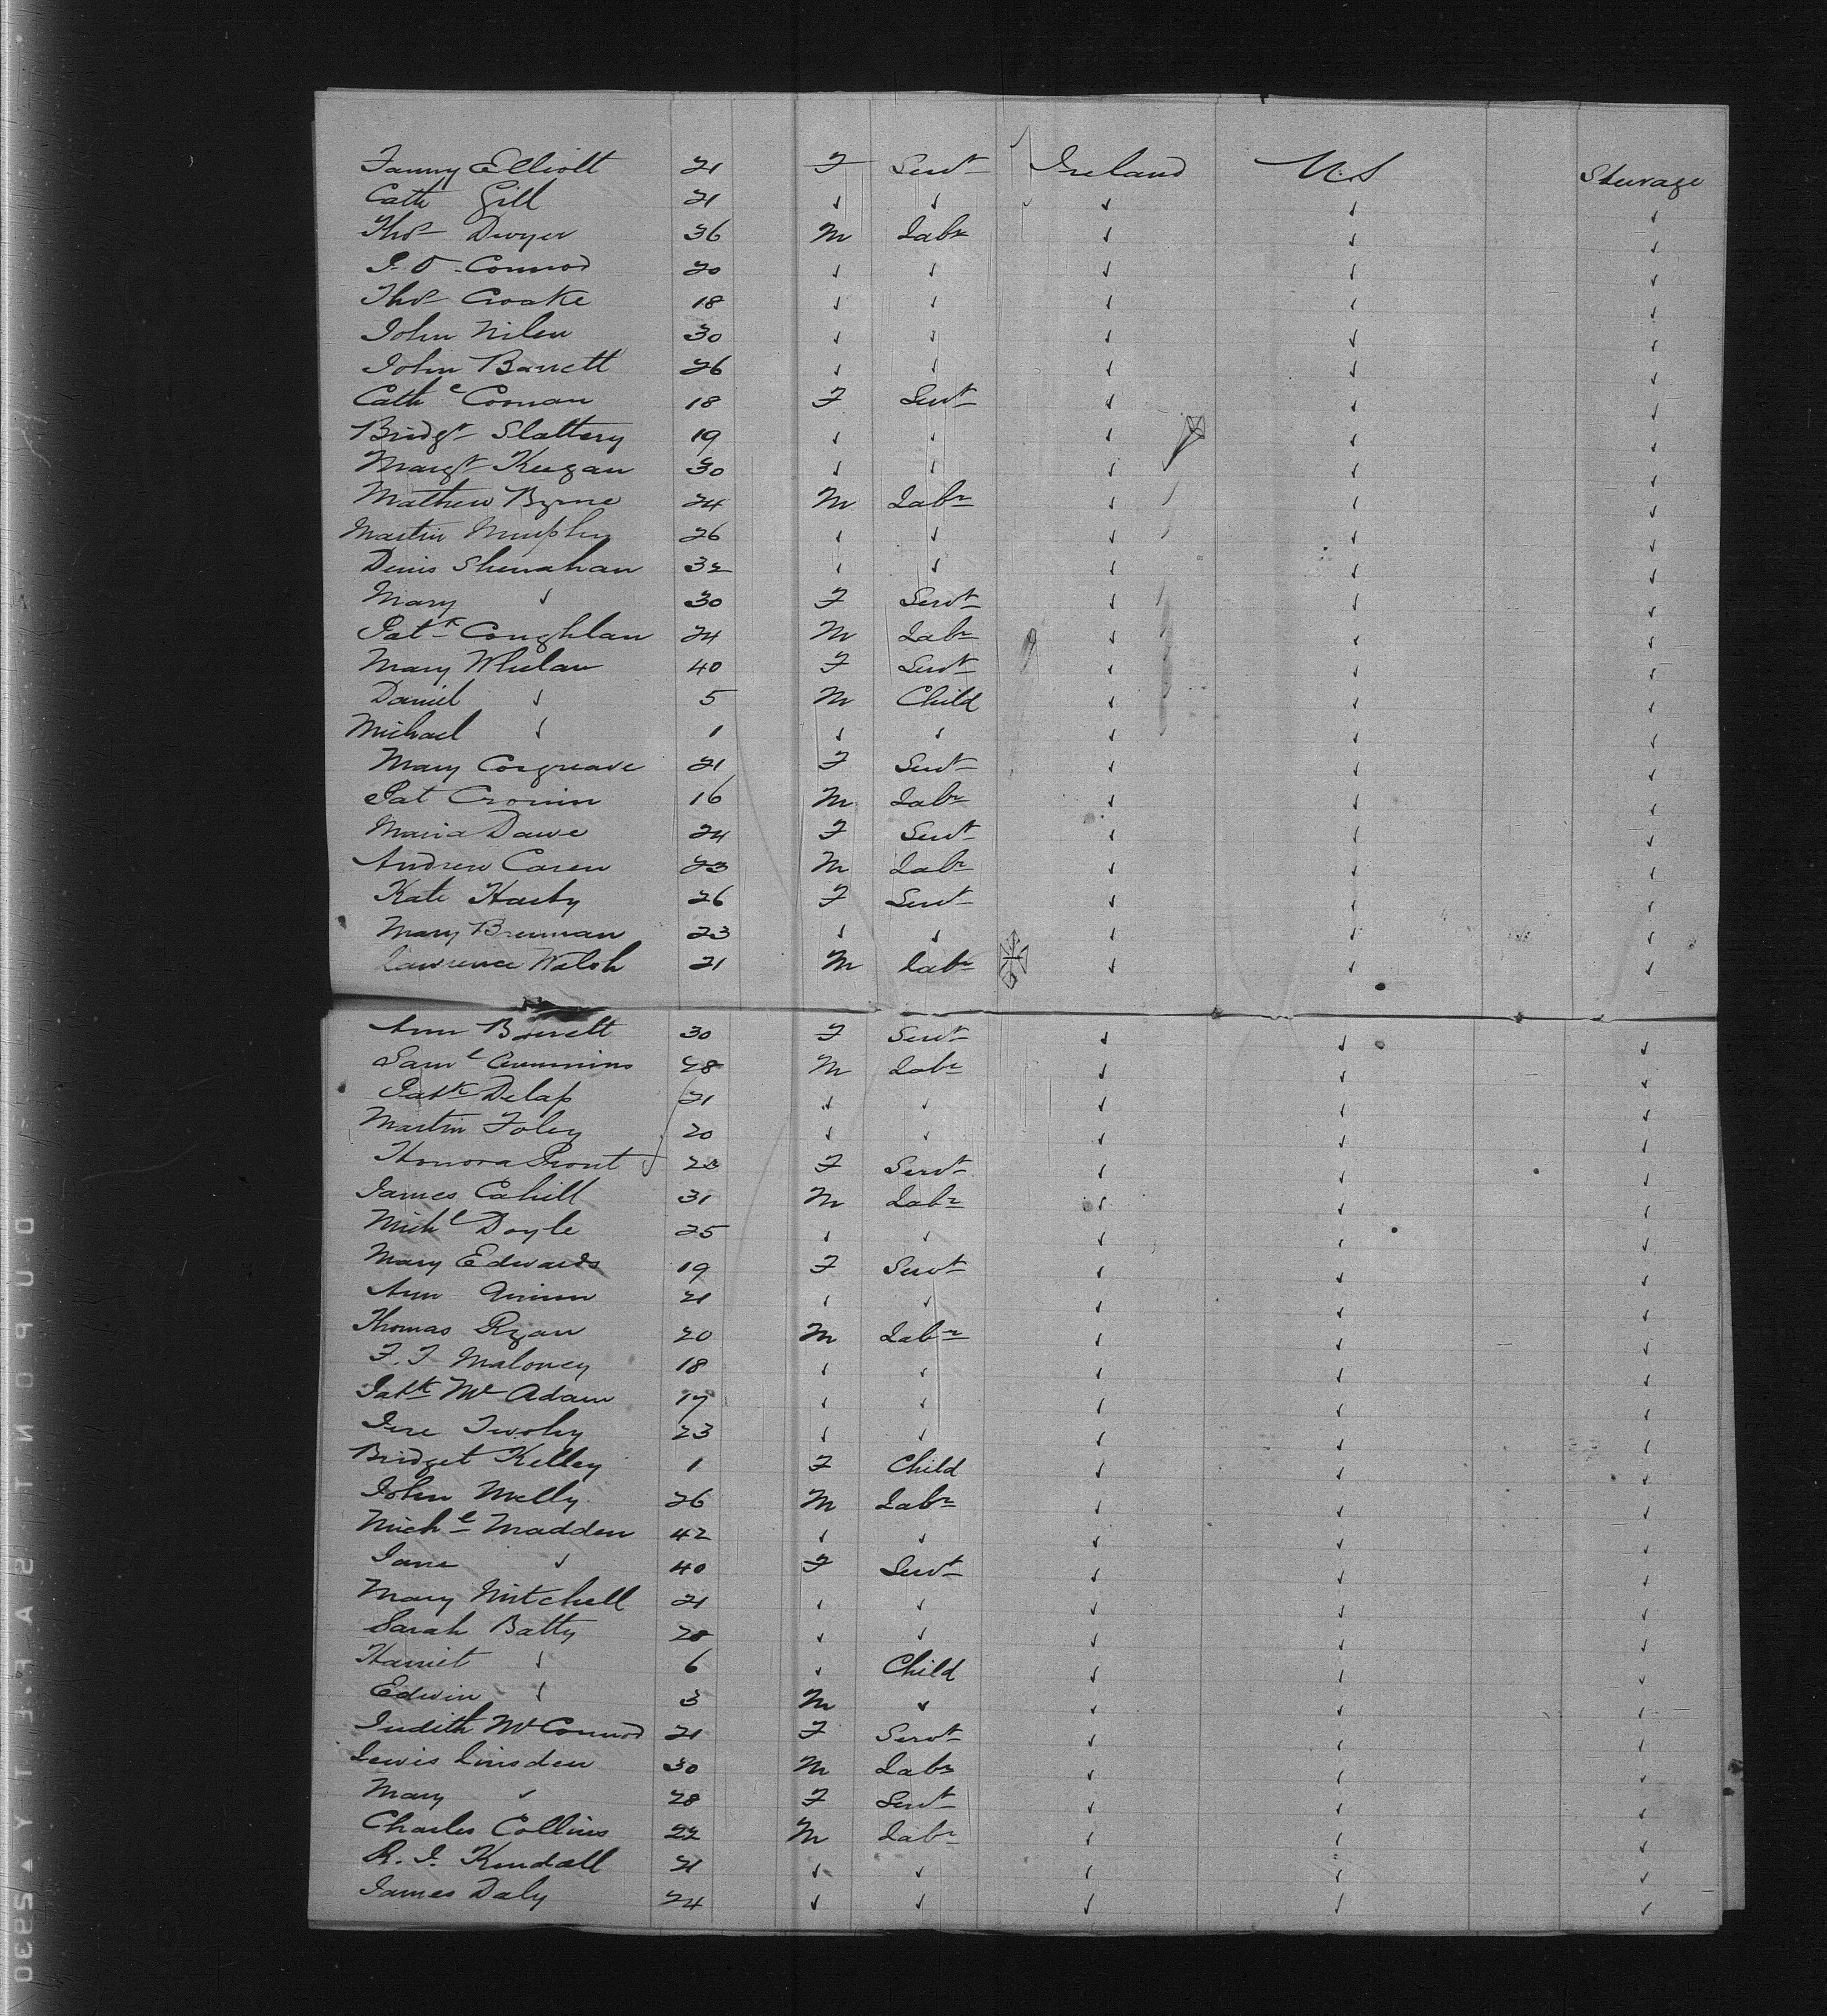 Fanny Elliott 21 F Servt Ireland U.S Steerage
Cath Gill 21 ✓ ✓ ✓ ✓ ✓
Thos Dwyer 36 M Labr ✓ ✓ ✓
P. O. Connor 20 ✓ ✓ ✓ ✓ ✓
Thos Croake 18 ✓ ✓ ✓ ✓ ✓
John Nilen 30 ✓ ✓ ✓ ✓ ✓
John Barrett 26 ✓ ✓ ✓ ✓ ✓
Cathe Coonan 18 F Servt ✓ ✓ ✓
Bridgt Slattery 19 ✓ ✓ ✓ ✓ ✓
Margt Keegan 30 ✓ ✓ ✓ ✓ ✓
Mathew Byrne 24 M Labr ✓ ✓ ✓
Martin Murphy 26 ✓ ✓ ✓ ✓ ✓
Denis Shenahan 32 ✓ ✓ ✓ ✓ ✓
Mary ✓ 30 F Servt ✓ ✓ ✓
Patk Coughlan 24 M Labr ✓ ✓ ✓
Mary Whelan 40 F Servt ✓ ✓ ✓
Daniel ✓ 5 M Child ✓ ✓ ✓
Michael ✓ 1 ✓ ✓ ✓ ✓ ✓
Mary Cosgreave 21 F Servt ✓ ✓ ✓
Pat Cronin 16 M Labr ✓ ✓ ✓
Maria Dawe 24 F Servt ✓ ✓ ✓
Andrew Caren 23 M Labr ✓ ✓ ✓
Kate 26 F Servt ✓ ✓ ✓
Mary Brennan 23 ✓ ✓ ✓ ✓ ✓
Lawrence Walsh 21 M Labr ✓ ✓ ✓
Ann Barrett 30 F Servt ✓ ✓ ✓
Saml Cummins 28 M Labr ✓ ✓ ✓
Patk Delap 21 ✓ ✓ ✓ ✓ ✓
Martin Foley 20 ✓ ✓ ✓ ✓ ✓
Honora Prout F Servt ✓ ✓ ✓
James Cahill 31 M Labr ✓ ✓ ✓
Michl Doyle 25 ✓ ✓ ✓ ✓ ✓
Mary Edwards 19 F Servt ✓ ✓ ✓
Ann Quinn 21 ✓ ✓ ✓ ✓ ✓
Thomas Ryan 20 M Labr ✓ ✓ ✓
F. F Maloney 18 ✓ ✓ ✓ ✓ ✓
Patk Mc Adam 17 ✓ ✓ ✓ ✓ ✓
Jere Twohy 23 ✓ ✓ ✓ ✓ ✓
Bridget Kelley 1 F Child ✓ ✓ ✓
John Melly 26 M Labr ✓ ✓ ✓
Michl Madden 42 ✓ ✓ ✓ ✓ ✓
Jane ✓ 40 F Servt ✓ ✓ ✓
Mary Mitchell 21 ✓ ✓ ✓ ✓ ✓
Sarah Batty 28 ✓ ✓ ✓ ✓ ✓
Harriet ✓ 6 ✓ Child ✓ ✓ ✓
Edwin ✓ 3 M ✓ ✓ ✓ ✓
Judith McConnod 21 F Servt ✓ ✓ ✓
Lewis Linsden 30 M Labr ✓ ✓ ✓
Mary ✓ 28 F Servt ✓ ✓ ✓
Charles Collins 22 M Labr ✓ ✓ ✓
R. J. Kendall 21 ✓ ✓ ✓ ✓ ✓
James Daly 24 ✓ ✓ ✓ ✓ ✓